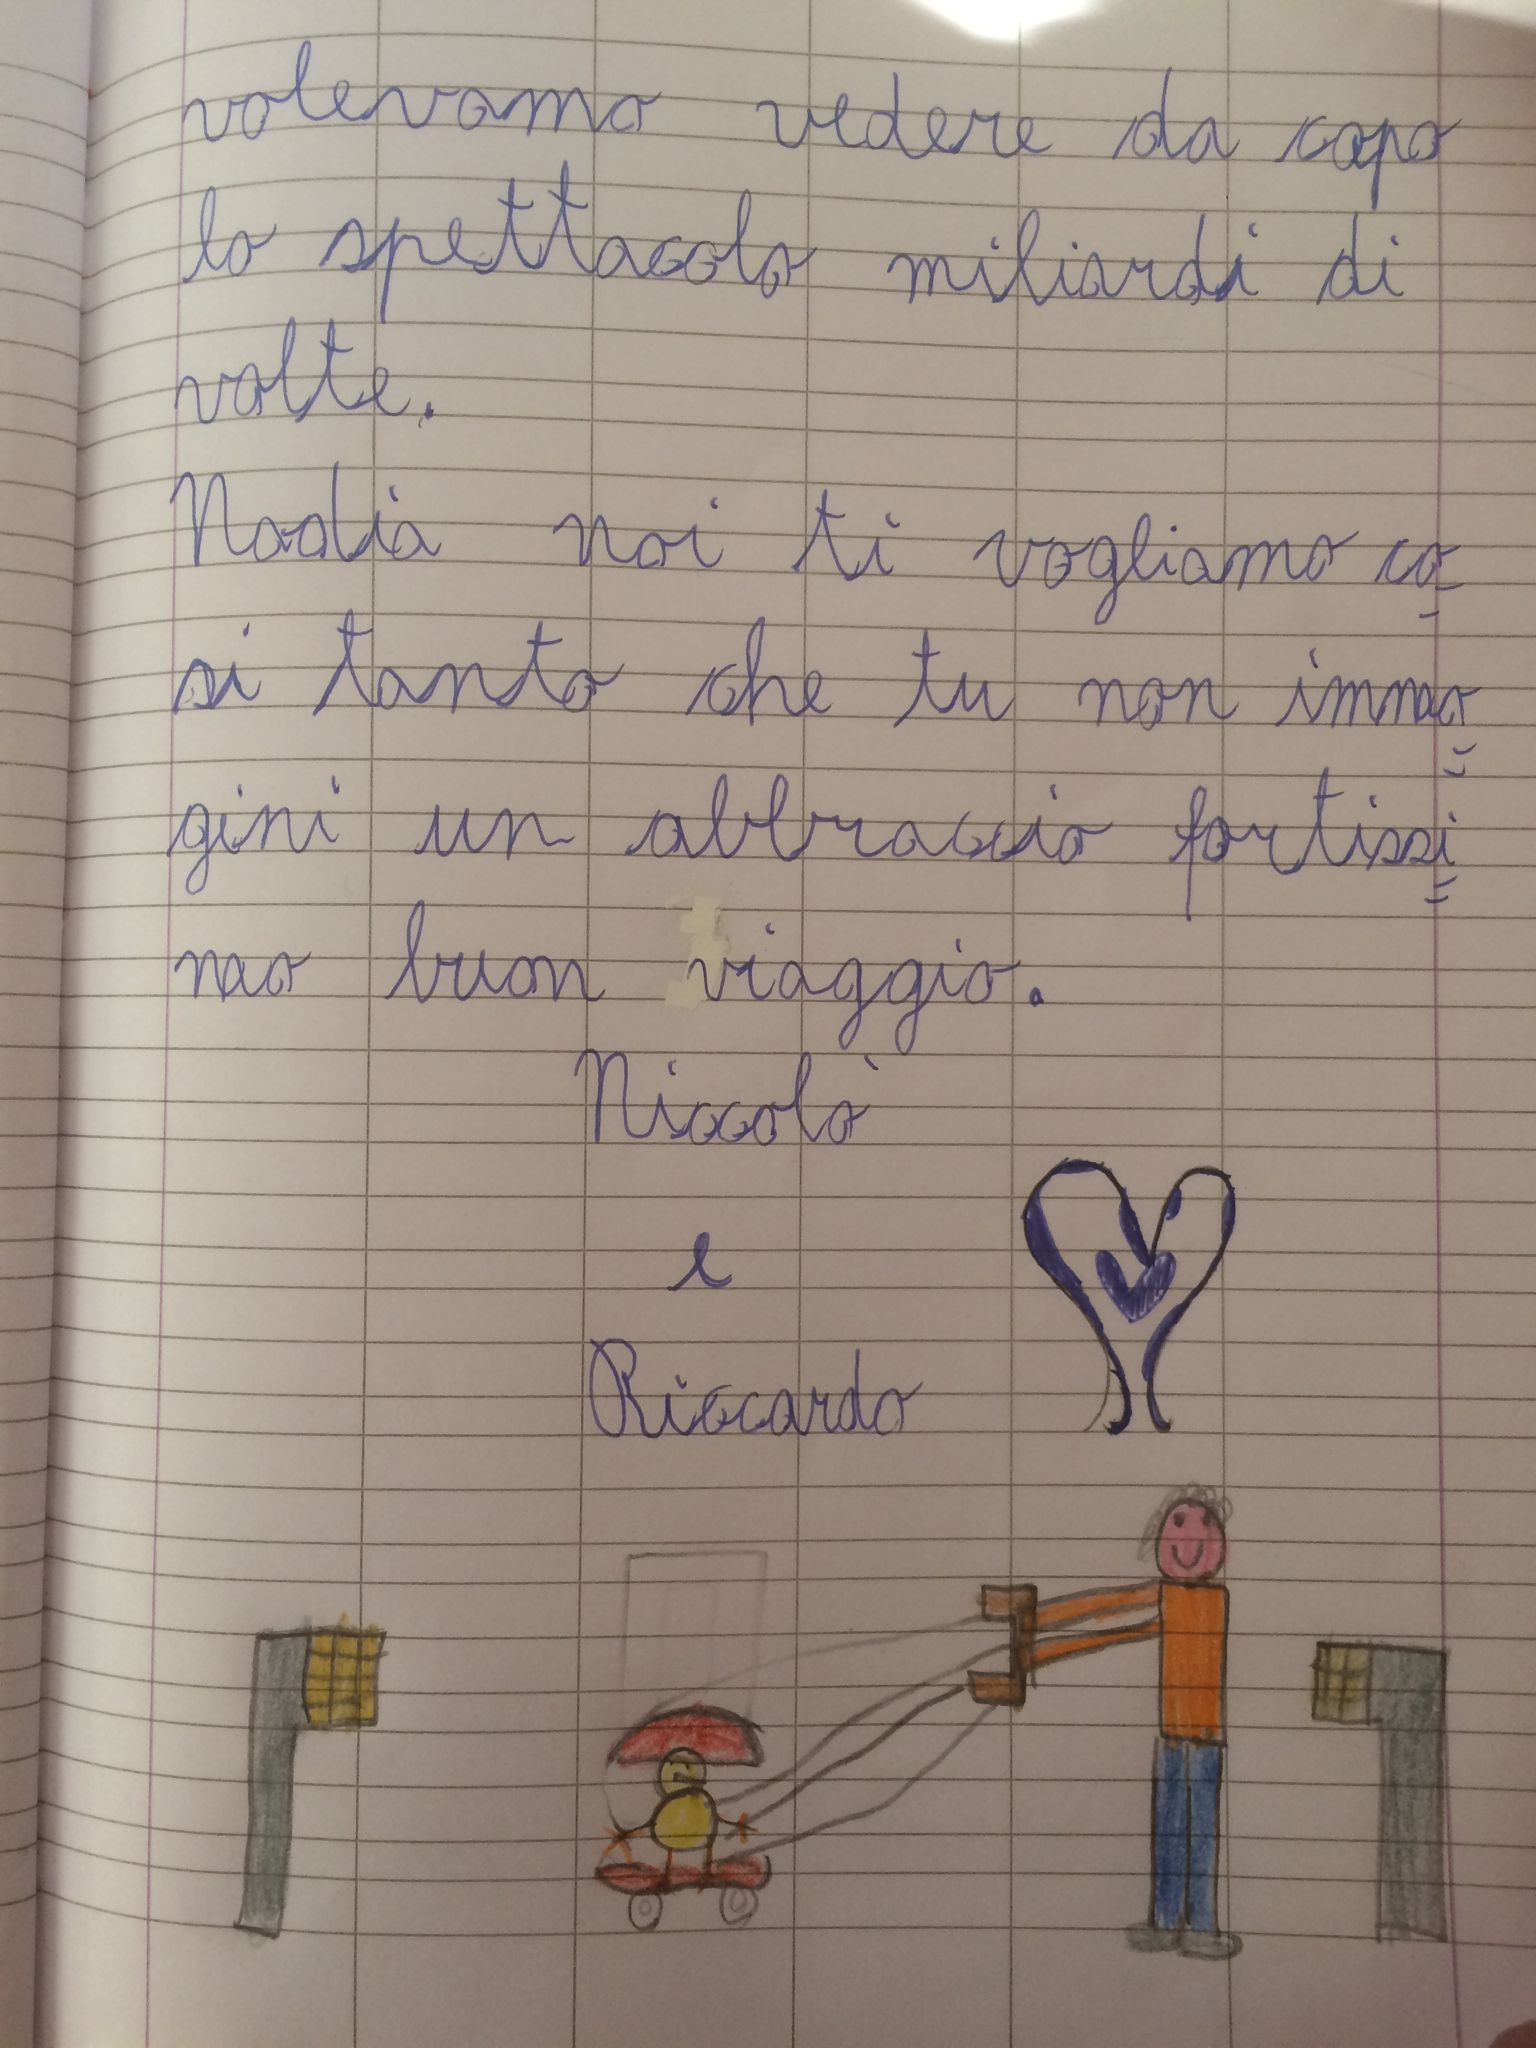 volevamo vedere da capo
lo spettacolo miliardi di
volte.
Nadia noi ti vogliamo co=
si tanto che tu non imma=
gini un abbraccio fortissi=
mo buon viaggio.
Niccolò
e
Riccardo